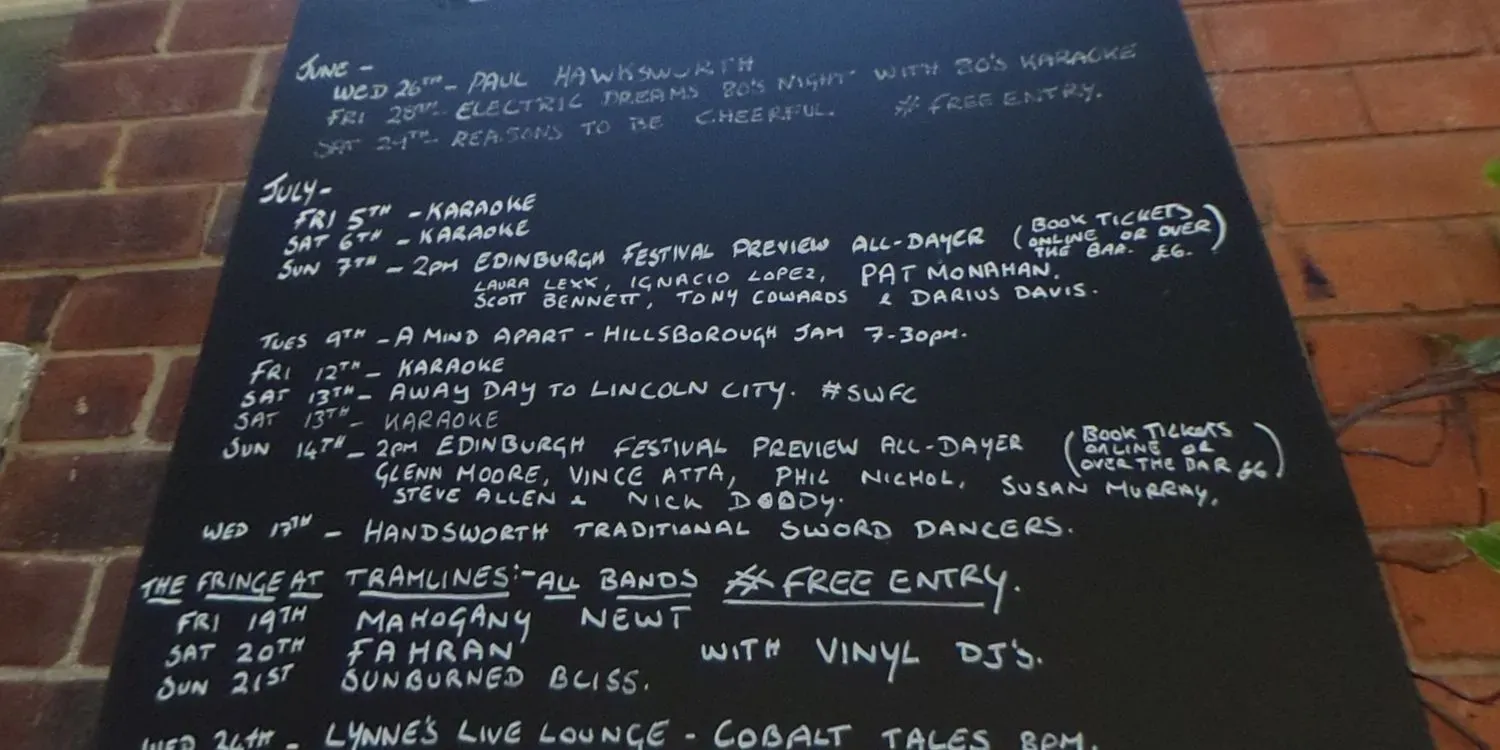 JUNE -
WED 26TH - PAUL HAWKSWORTH
FRI 28TH - ELECTRIC DREAMS 80'S NIGHT WITH 80'S KARAOKE
SAT 29TH - REASONS TO BE CHEERFUL. # FREE ENTRY.
JULY -
FRI 5TH - KARAOKE
SAT 6TH - KARAOKE
SUN 7TH - 2PM EDINBURGH FESTIVAL PREVIEW ALL-DAYER (BOOK TICKETS
ONLINE OR OVER
THE BAR. £6.)
LAURA LEXX, IGNACIO LOPEZ, PAT MONAHAN.
SCOTT BENNETT, TONY COWARDS & DARIUS DAVIS.
TUES 9TH - A MIND APART - HILLSBOROUGH JAM 7-30PM.
FRI 12TH - KARAOKE
SAT 13TH - AWAY DAY TO LINCOLN CITY. #SWFC
SAT 13TH - KARAOKE
SUN 14TH - 2PM EDINBURGH FESTIVAL PREVIEW ALL-DAYER (BOOK TICKETS
ONLINE OR
OVER THE BAR £6)
GLENN MOORE, VINCE ATTA, PHIL NICHOL, SUSAN MURRAY,
STEVE ALLEN & NICK DOODY.
WED 17TH - HANDSWORTH TRADITIONAL SWORD DANCERS.
THE FRINGE AT TRAMLINES:- ALL BANDS # FREE ENTRY.
FRI 19TH MAHOGANY NEWT
SAT 20TH FAHRAN WITH VINYL DJ'S.
SUN 21ST SUNBURNED BLISS.
WED 24TH - LYNNE'S LIVE LOUNGE - COBALT TALES 8PM.